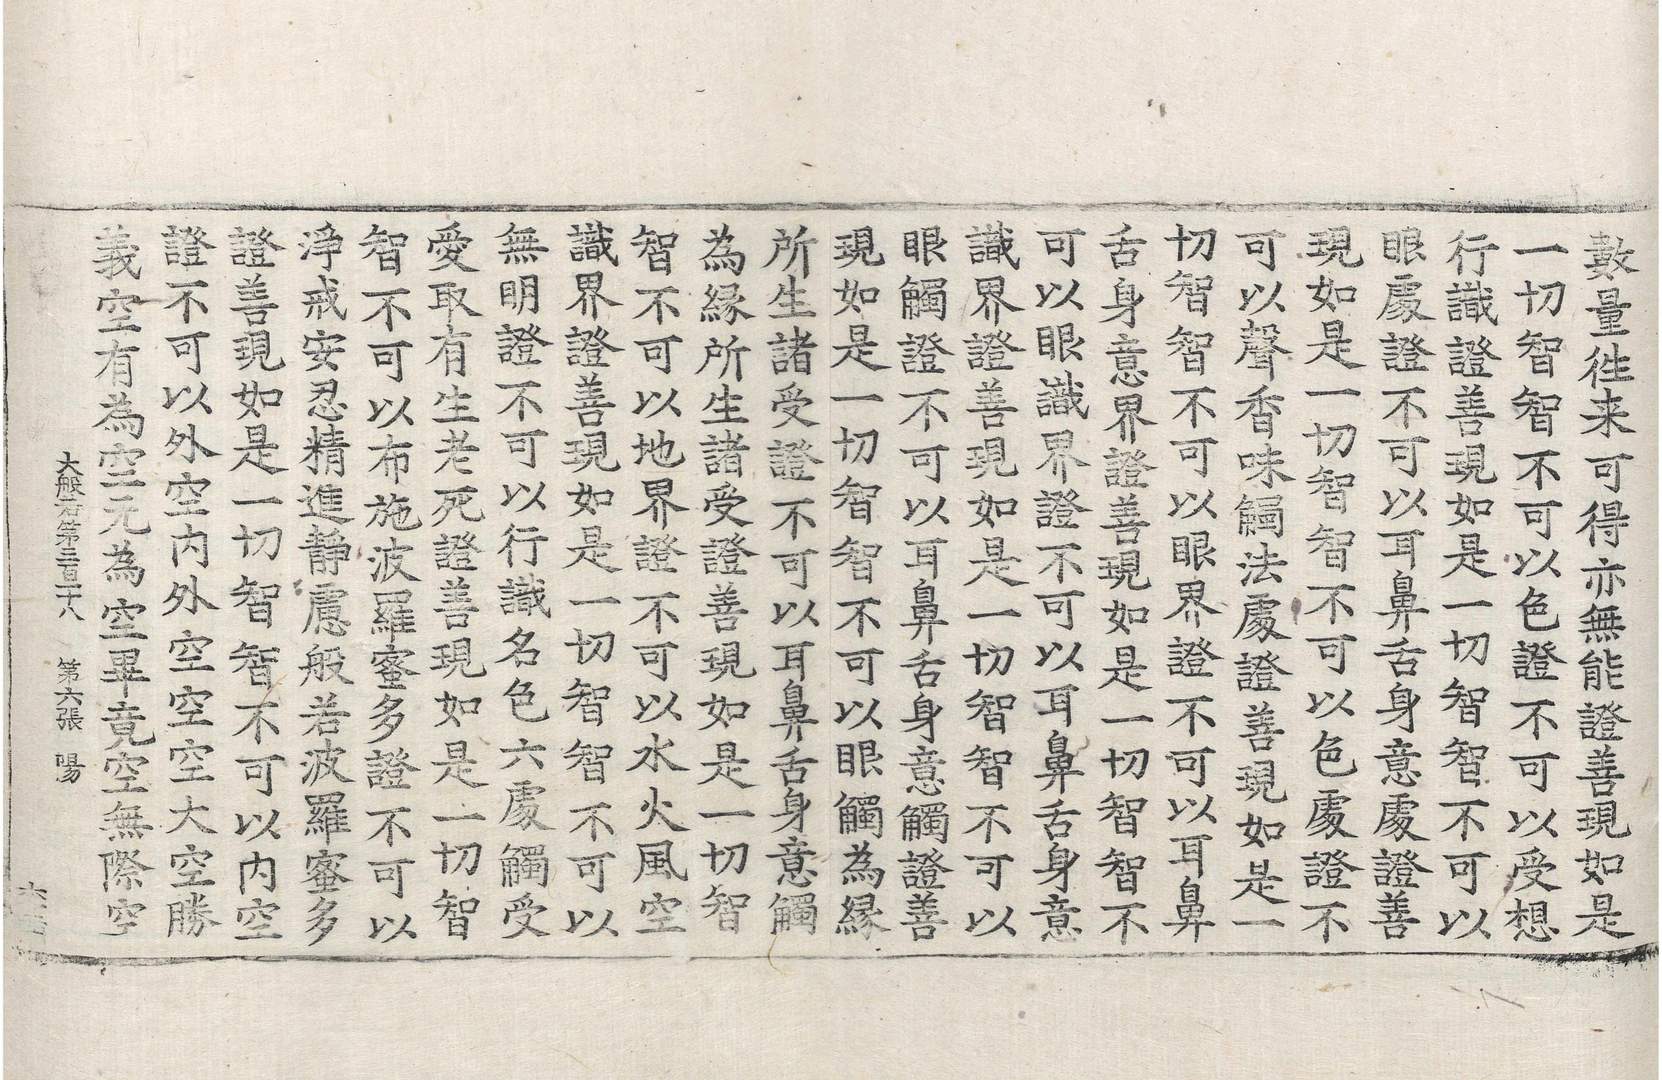 數量徃来可得亦無能證善現如是
一切智智不可以色證不可以受想
行識證善現如是一切智智不可以
眼處證不可以耳鼻舌身意處證善
現如是一切智智不可以色處證不
可以聲香味觸法處證善現如是一
切智智不可以眼界證不可以耳鼻
舌身意界證善現如是一切智智不
可以眼識界證不可以耳鼻舌身意
識界證善現如是一切智智不可以
眼觸證不可以耳鼻舌身意觸證善
現如是一切智智不可以眼觸為縁
所生諸受證不可以耳鼻舌身意觸
為縁所生諸受證善現如是一切智
智不可以地界證不可以水火風空
識界證善現如是一切智智不可以
無明證不可以行識名色六處觸受
愛取有生老死證善現如是一切智
智不可以布施波羅蜜多證不可以
淨戒安忍精進靜慮般若波羅蜜多
證善現如是一切智智不可以内空
證不可以外空内外空空空大空勝
義空有為空无為空畢竟空無際空
大般若第三百一十八 第六張 陽